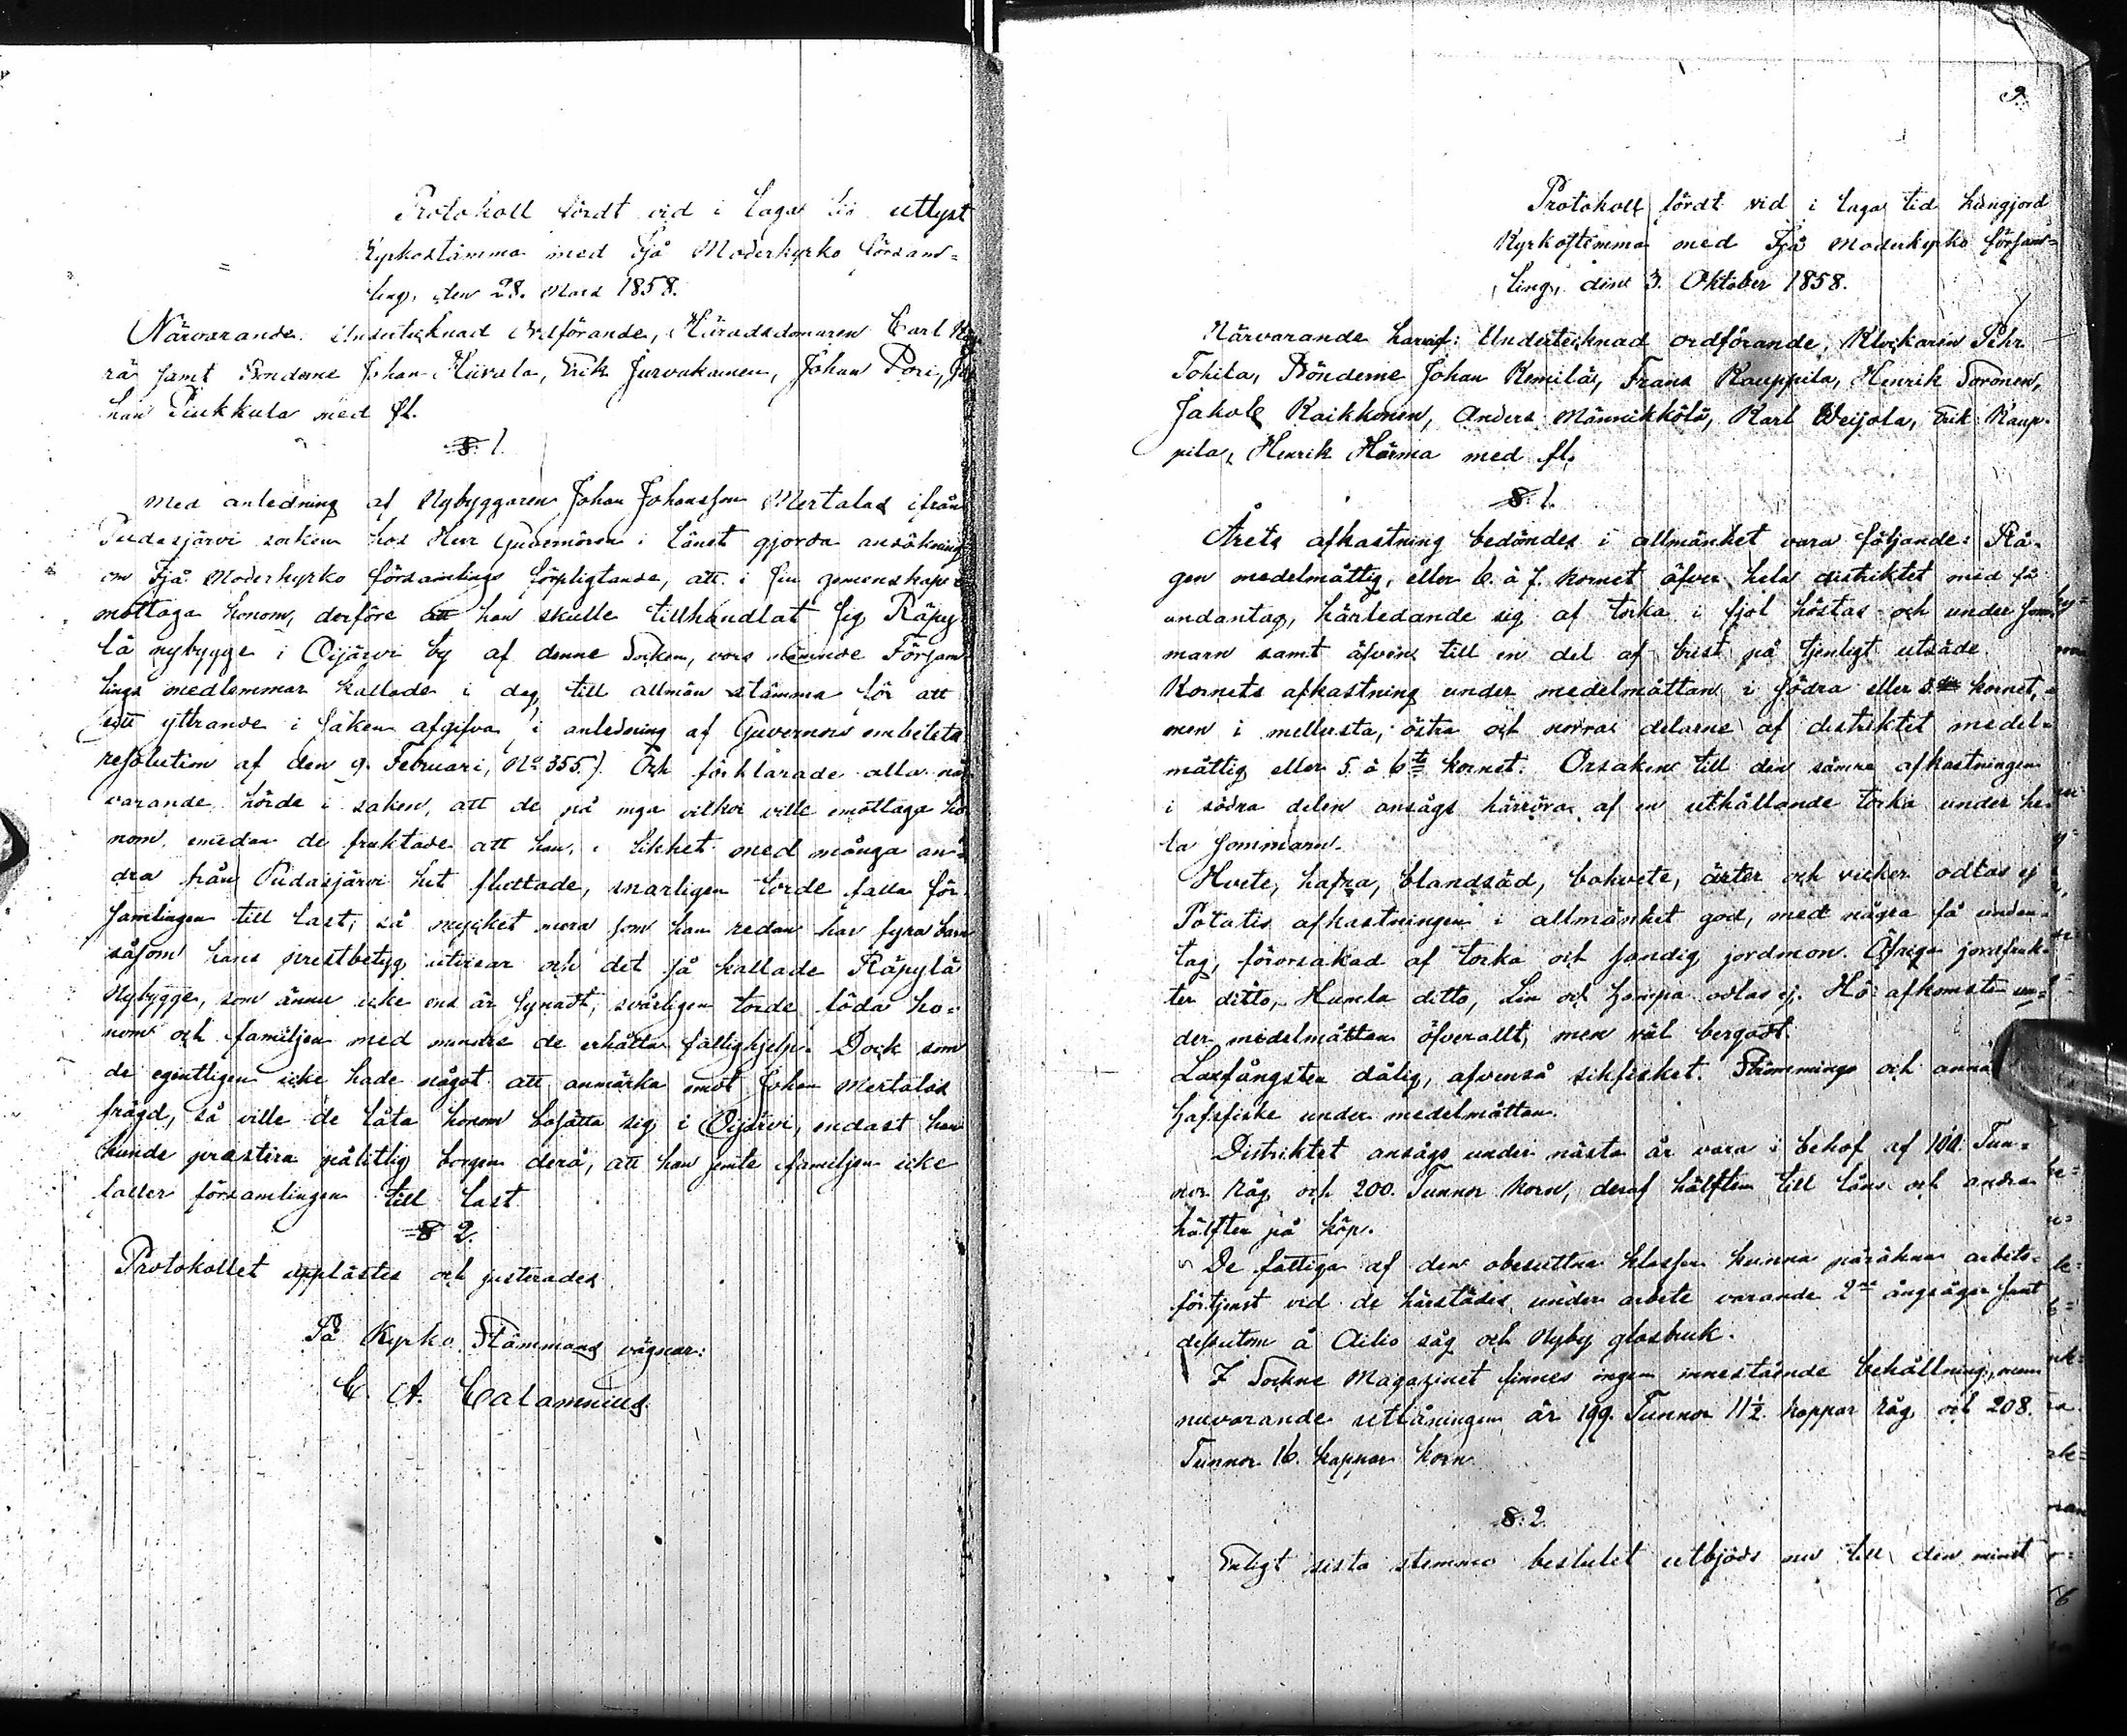 Protokoll fördt vid i laga tid utlyst
Kyrkostämma med Ijå Moderkyrko församm=
ling, den 28. Mars 1858.
Närvarande. Undertecknad Ordförande, Häradsdomaren Carl
rä samt Bönderne Johan Hiivala, Erik Jurvakainen, Johan Pori, Jo
han Piukkula med fl.
§ 1.
Med anledning af Nybyggaren Johan Johansson Mertalas ifrån
Pudasjärvi socken hos Herr Guvernören i Länet gjorda ansökning
om Ijå Moderkyrko församlings förpligtande, att i sin gemenskap
mottaga honom, derföre att han skulle tillhandlat sig Räpy
lä nybygge i Oijärvi by af denne Socken, vors nämnde Försam
lings medlemmar kallade i dag till allmän stämma för att
sitt yttrande i saken afgifva, i anledning af Guvernörs embetets
resolution af den 9. Februari, No 355.). Och förklarade alla när
varande hörde i saken, att de på inga vilkor ville emottaga ho
nom, emedan de fruktade att han, i likhet med många an=
dra från Pudasjärvi hit flyttade, snarligen torde falla för
samlingen till last, så mycket mera som han redan har fyra barn
såsom hans prestbetyg utvisar och det så kallade Räpylä
Nybygge, som ännu icke ens är synadt, svårligen torde föda ho=
nom och familjen med mindre de erhålla fattighjelp. Dock som
de egentligen icke hade något att anmärka emot Johan Mertalas
frägd, så ville de låta honom bosätta sig i Oijärvi, endast han
kunde prestera pålitlig borgen derå, att han jemte familjen icke
faller församlingen till last
§ 2.
Protokollet upplästes och justerades
På Kyrko Stämmans vägnar:
C. A. Calamnius.
9.
Protokoll fördt vid i laga tid kungjord
Kyrkostämma med Ijå Moderkyrko försam=
ling, den 3. Oktober 1858.
Närvarande härvid: Undertecknad ordförande, Klockaren Pehr
Tohila, Bönderne Johan Kemilä, Frans Kauppila, Henrik Soronen,
Jakob Kaikkonen, Anders Männikkölä, Karl Weijola, Erik Kaup=
pila, Henrik Härmä med fl.
§. 1.
Årets afkastning bedömdes i allmänhet vara följande: Rå=
gen medelmåttig, eller 6. à 7. kornet öfver hela distriktet med få
undantag, härledande sig af torka i fjol höstas och under som=
marn samt äfven till en del af brist på tjenligt utsäde.
Kornets afkastning under medelmåttan i södra eller 3. kornet,
men i mellersta, östra och norra delarne af distriktet medel=
måttig eller 5. à 6te kornet. Orsaken till den sämre afkastningen
i södra delen ansågs härröra af en uthållande torka under he=
la sommarn.
Hvete, hafra, blandsäd, bohvete, ärter och vicker odlas ej
Potatis afkastningen i allmänhet god, med några få undan=
tag, förorsakad af torka och sandig jordmon. Öfriga jordfruk=
ter ditto, Humla ditto, Lin och Hampa odlas ej. Hö afkomsten un=
der medelmåttan öfverallt, men väl bergadt.
Laxfångsten dålig, äfvenså sikfisket. Strömmings och anna
hafsfiske under medelmåttan.
Distriktet ansågs under nästa år vara i behof af 100. Tun=
nor Råg och 200. Tunnor Korn, deraf hälften till låns och andra
hälften på köp.
De fattiga af den obesuttna klassen kunna påräkna arbets=
förtjenst vid de härstädes under arbete varande 2ne ångsågar samt
dessutom å Aitio såg och Nyby glasbruk.
I Sockne Magazinet finnes ingen innestående behållning, men
nuvarande utlåningen är 199. Tunnor 11½ kappar Råg och 208.
Tunnor 16. kappar korn
§. 2.
Enligt sista stämmo beslutet utbjöds nu till den minst